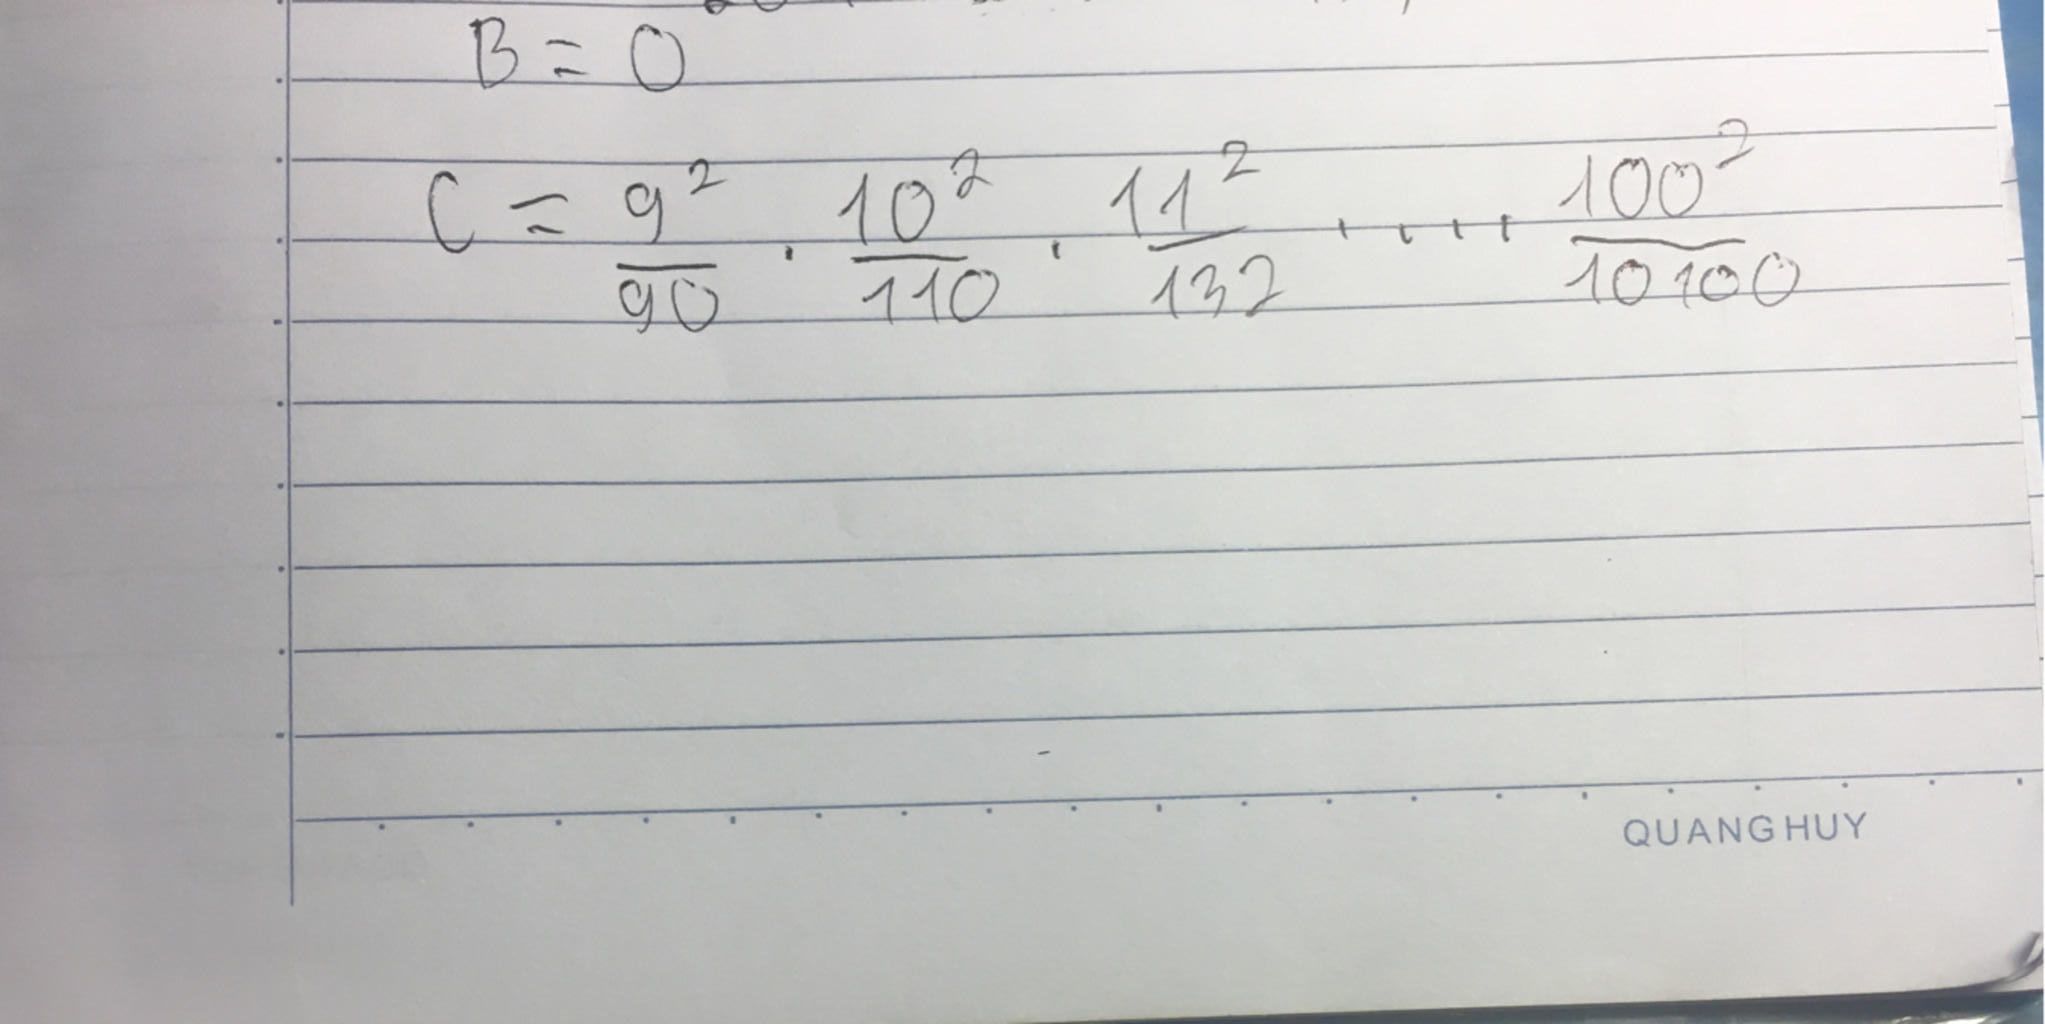 B = 0
C = 9²/90 . 10²/110 . 11²/132 . . . . 100²/10100
QUANG HUY